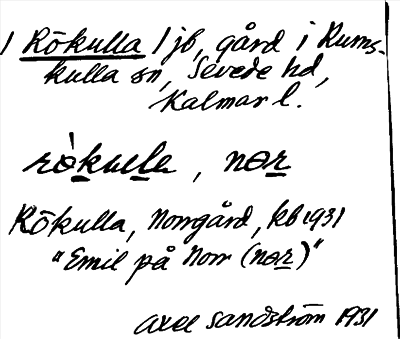 1 Rökulla 1 jb, gård i Rums-
kulla sn, Sevede hd,
Kalmar l.
rò̀kula, nor
Rökulla, Norrgård, kb 1931
"Emil på Norr (nor)"
Axel Sandström 1931